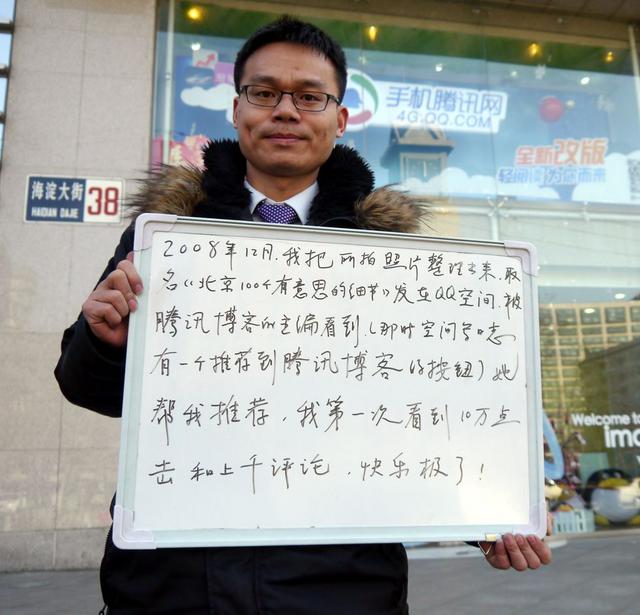 手机腾讯网
4G.QQ.COM
全新改版
轻阅读 为您而来
海淀大街
HAIDIAN DAJIE
38
2008年12月.我把所拍照片整理出来.取
名《北京100个有意思的细节》发在QQ空间.被
腾讯博客的主编看到.(那时空间写日志
有一个推荐到腾讯博客的按钮)她
帮我推荐，我第一次看到10万点
击和上千评论，快乐极了！
Welcome to